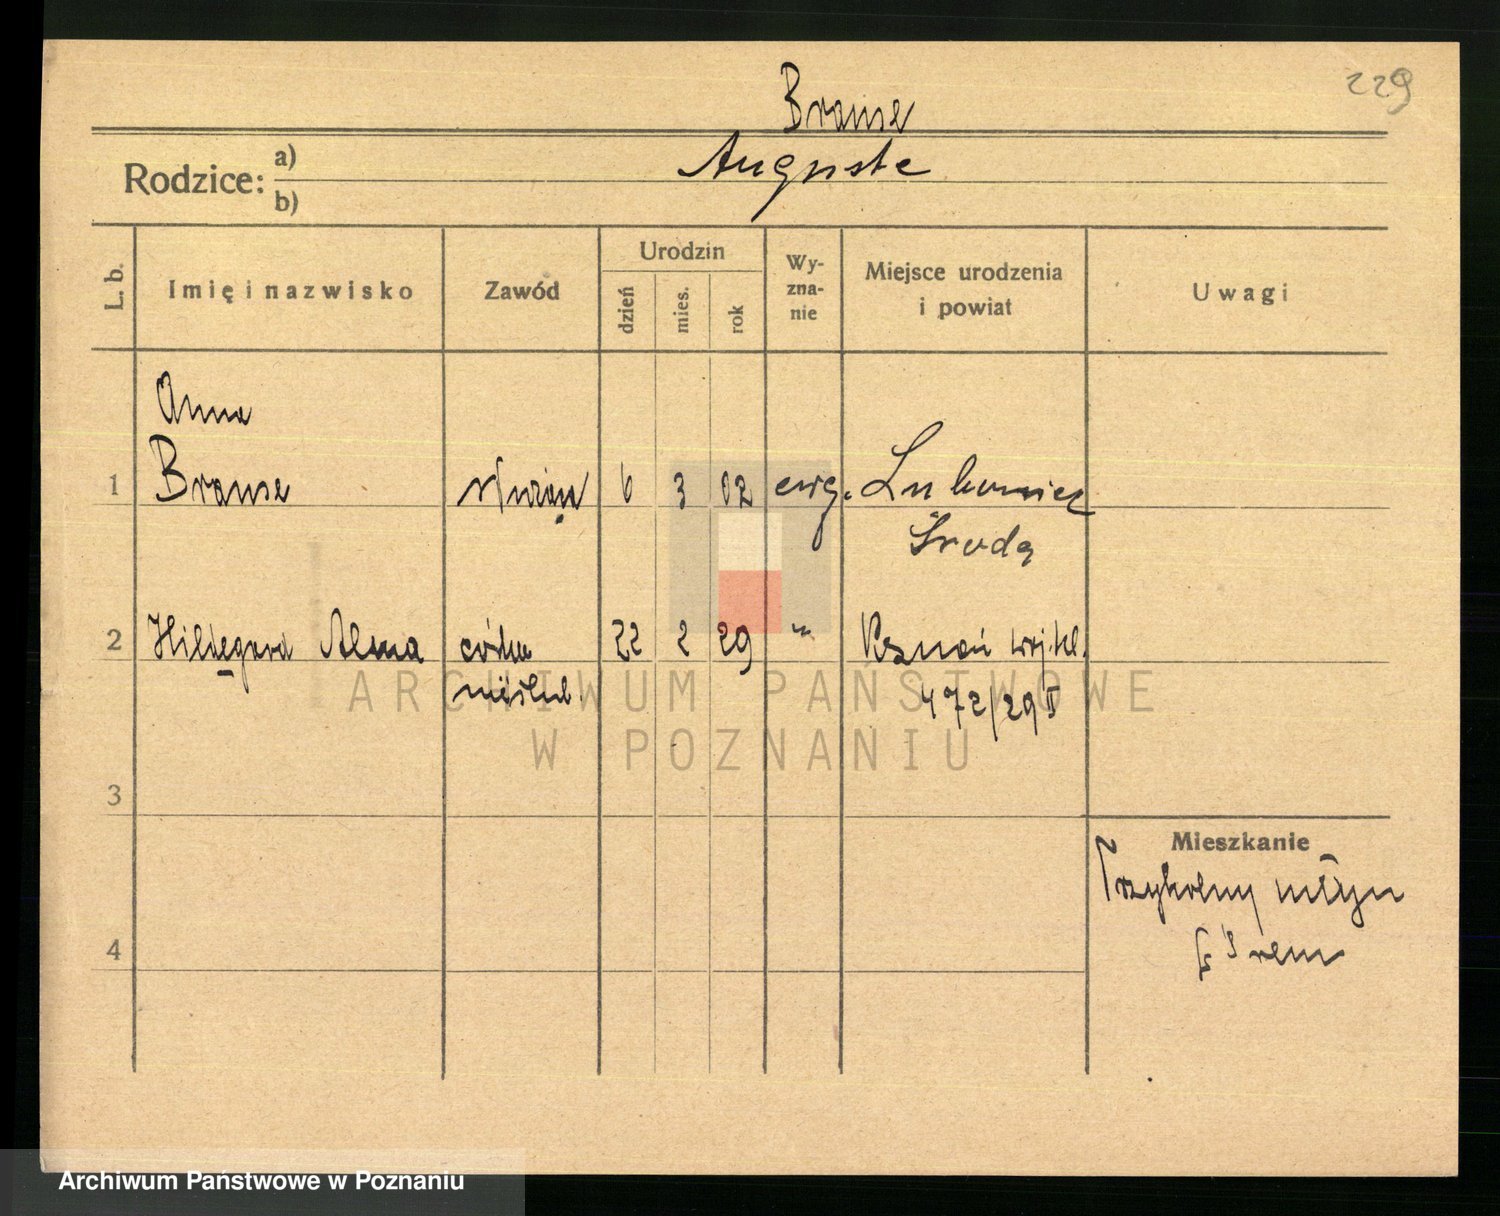 229
Brause
Rodzice: a) Auguste
b)
L. b. Imię i nazwisko Zawód Urodzin dzień mies. rok Wyznanie Miejsce urodzenia i powiat Uwagi
Anna
1 Brause służąca 6 3 02 ewg. Lubowiec
Środa
2 Hildegard Alma córka 22 2 29 " Poznań
nieślub. 472/29 I
3
4
Mieszkanie
młyn
Śrem
ARCHIWUM PAŃSTWOWE
W POZNANIU
Archiwum Państwowe w Poznaniu